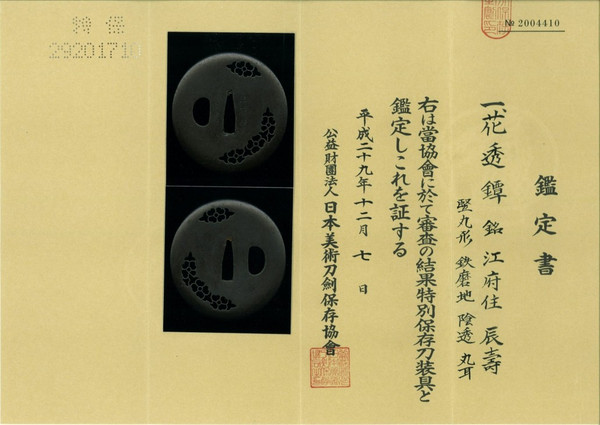 № 2004410
鑑定書
一、花透鐔 銘 江府住 辰壽
竪丸形 鉄磨地 陰透 丸耳
右は當協會に於て審査の結果特別保存刀装具と
鑑定しこれを証する
平成二十九年十二月七日
公益財團法人日本美術刀劍保存協會
特保
29201710